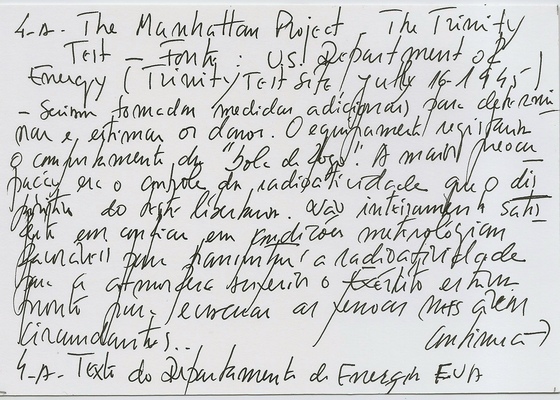 4-A. The Manhattan Project The Trinity
Test - Fonte: U.S. Department of
Energy (Trinity Test Site, july 16-1945)
- Seriam tomadas medidas adicionais para determi-
nar e estimar os danos. O equipamento registraria
o comportamento da "bola de fogo". A maior preocu
pação era o controle da radioatividade que o dis
positivo do teste libertaria. Não inteiramente satis
feito em confiar em condições metrológicas
favoráveis para transmitir a radioatividade
para a atmosfera superior o Exército estava
pronto para evacuar as pessoas nas áreas
circundantes..
continua →
4-A. Texto do Departamento de Energia EUA